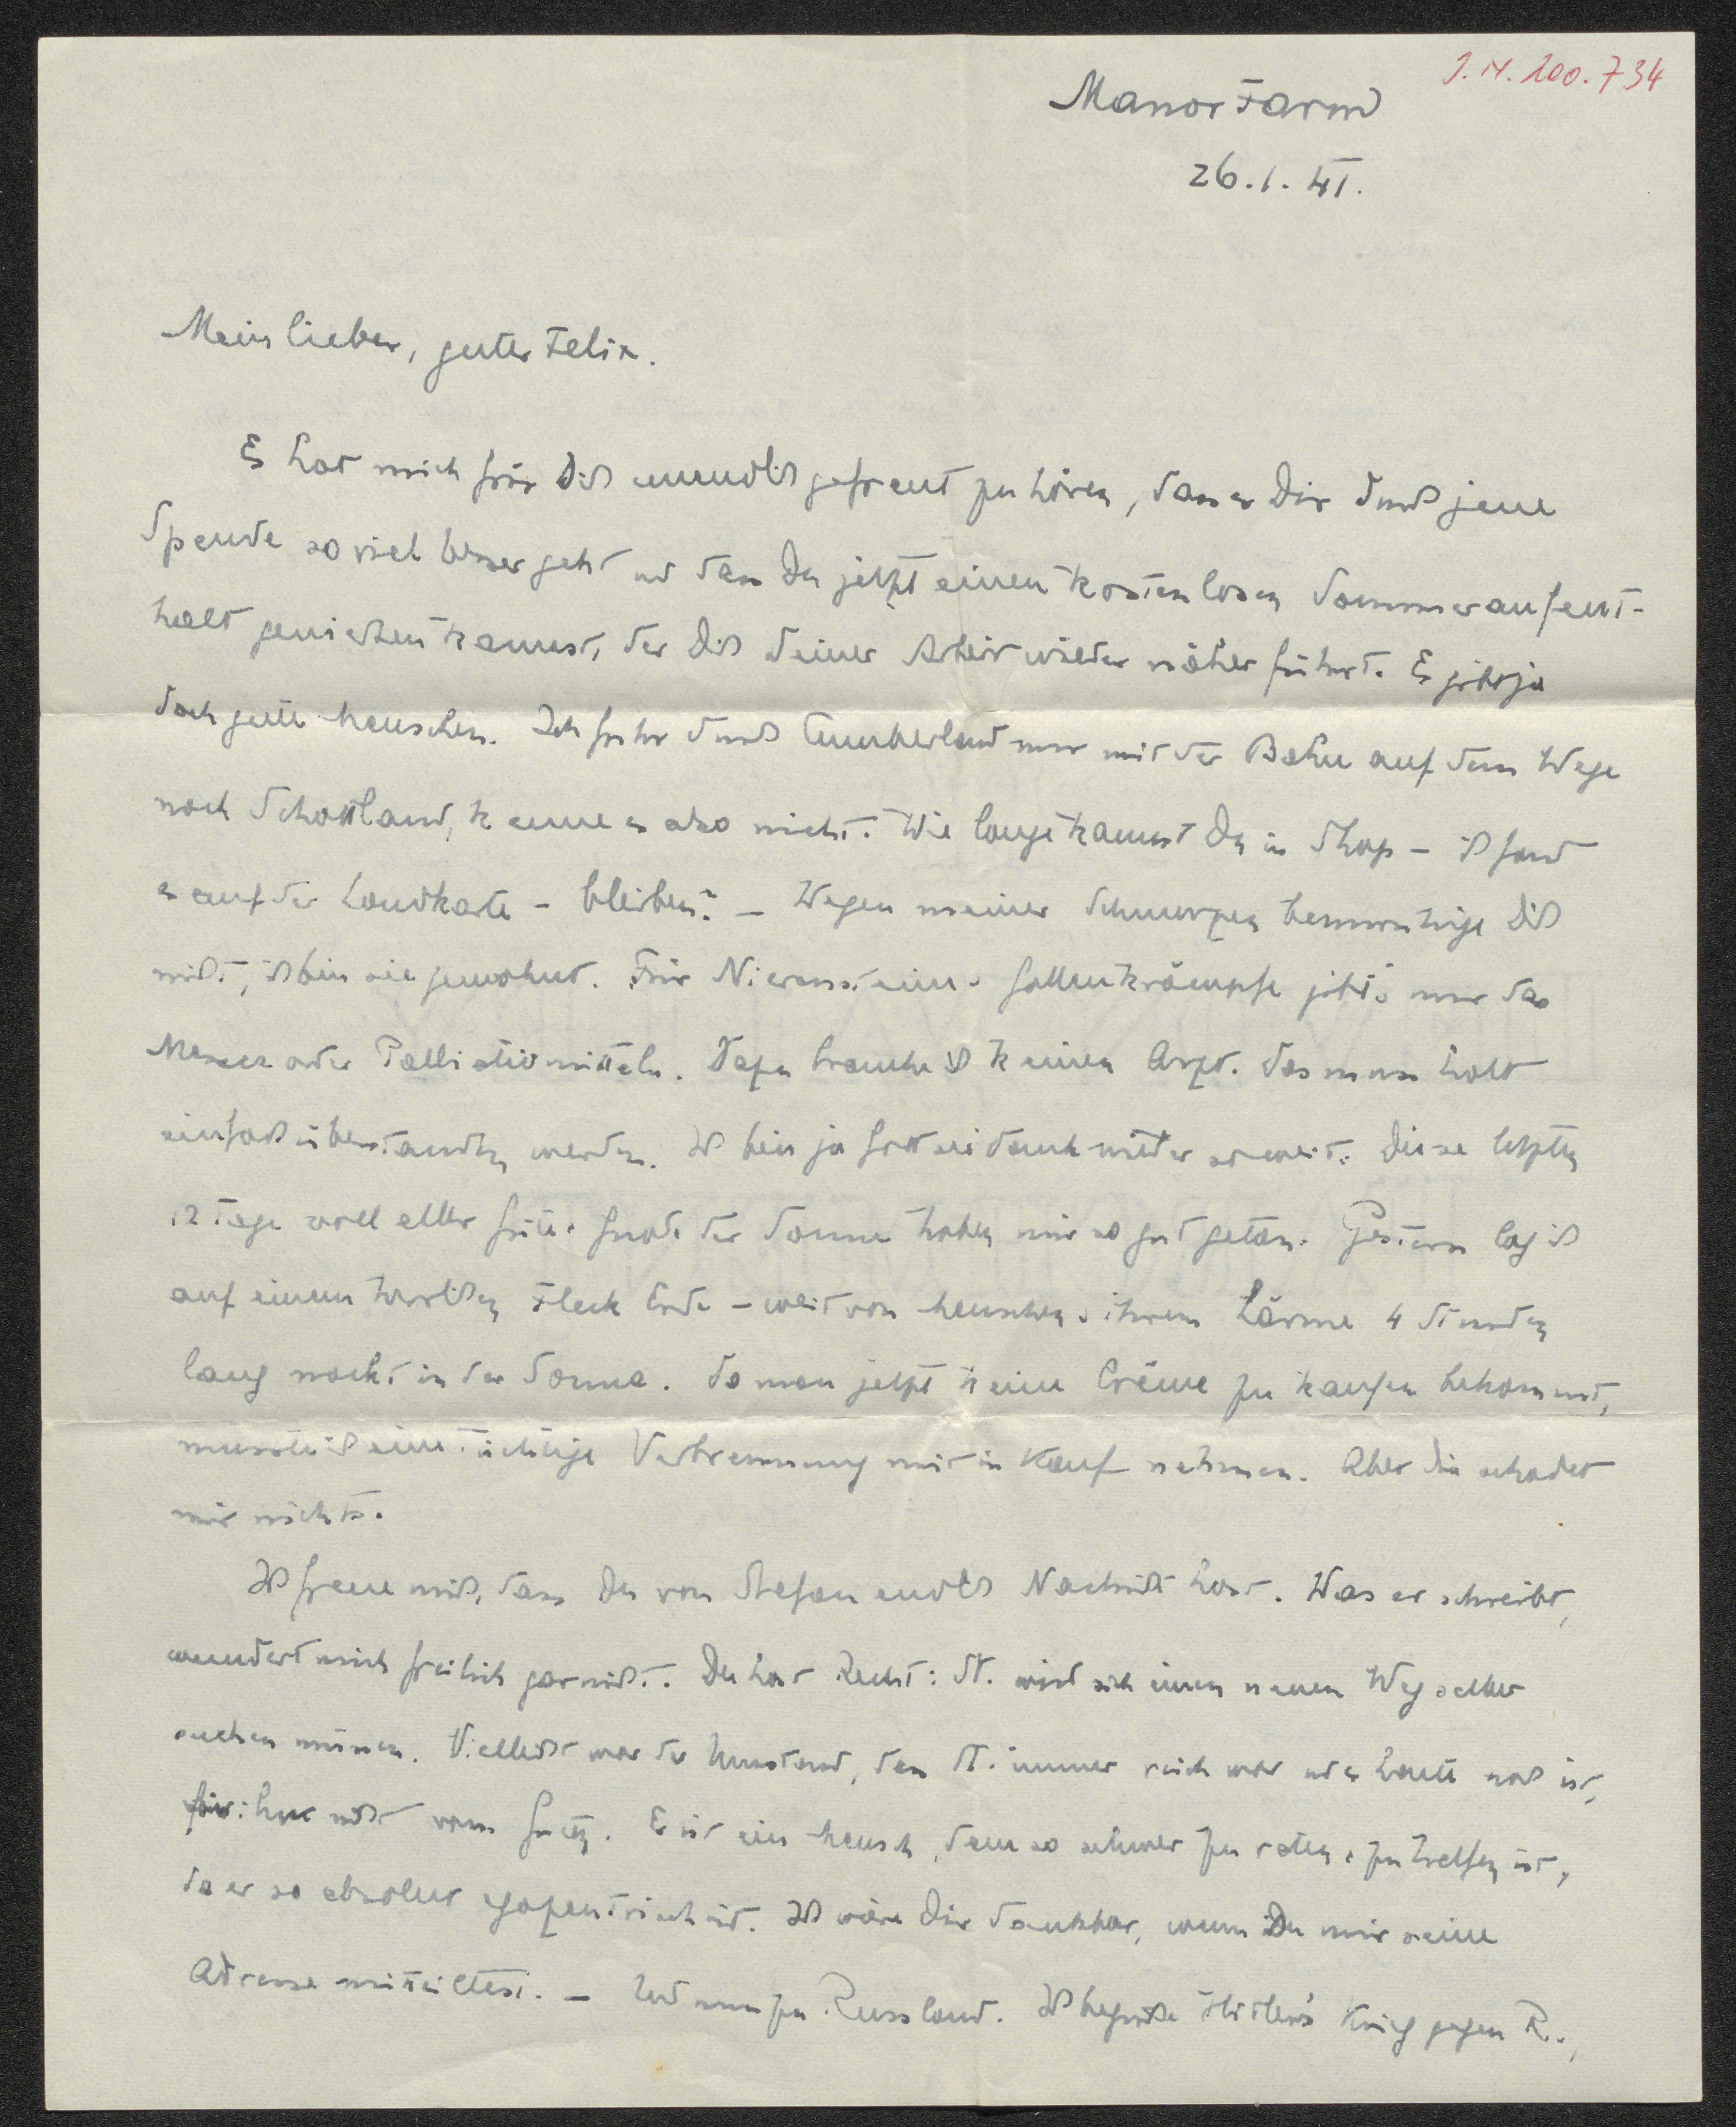 J.N. 200.734
Manor Farm
26. 1. 41.
Mein lieber, guter Felix.
Es hat mich für Dich unendlich gefreut zu hören, dass es Dir durch jene
Spende so viel besser geht und dass Du jetzt einen kostenlosen Sommeraufent-
halt geniessen kannst, der Dich Deiner Arbeit wieder näher führt. Es gibt ja
doch gute Menschen. Ich fuhr durch Cumberland nur mit der Bahn auf dem Wege
nach Schottland, kenne es also nicht. Wie lange kannst Du in Shap – ich fand
es auf der Landkarte – bleiben? – Wegen meiner Schmerzen beunruhige Dich
nicht, ich bin sie gewohnt. Für Nierenstein- u. Gallenkrämpfe gibt's nur das
Messer oder Palliativmitteln. Dazu brauche ich keinen Arzt. Das muss halt
einfach überstanden werden. Ich bin ja Gott sei dank wieder so weit. Diese letzten
12 Tage voll aller Güte u. Gnade der Sonne haben mir so gut getan. Gestern lag ich
auf einem herrlichen Fleck Erde – weit von Menschen u. ihrem Lärme 4 Stunden
lang nackt in der Sonne. Da man jetzt keine Crême zu kaufen bekommt,
musste ich eine tüchtige Verbrennung mit in Kauf nehmen. Aber die schadet
mir nichts.
Ich freue mich, dass Du von Stefan endlich Nachricht hast. Was er schreibt,
wundert mich freilich gar nicht. Du hast Recht: St. wird sich einen neuen Weg selber
suchen müssen. Vielleicht war der Umstand, dass St. immer reich war und es heute noch ist,
für ihn nicht vom Guten. Er ist ein Mensch, dem so schwer zu raten u. zu helfen ist,
da er so absolut egozentrisch ist. Ich wäre Dir dankbar, wenn Du mir seine
Adresse mitteiltest. – Und nun zu Russland. Ich begrüße Hitler's Krieg gegen R.,